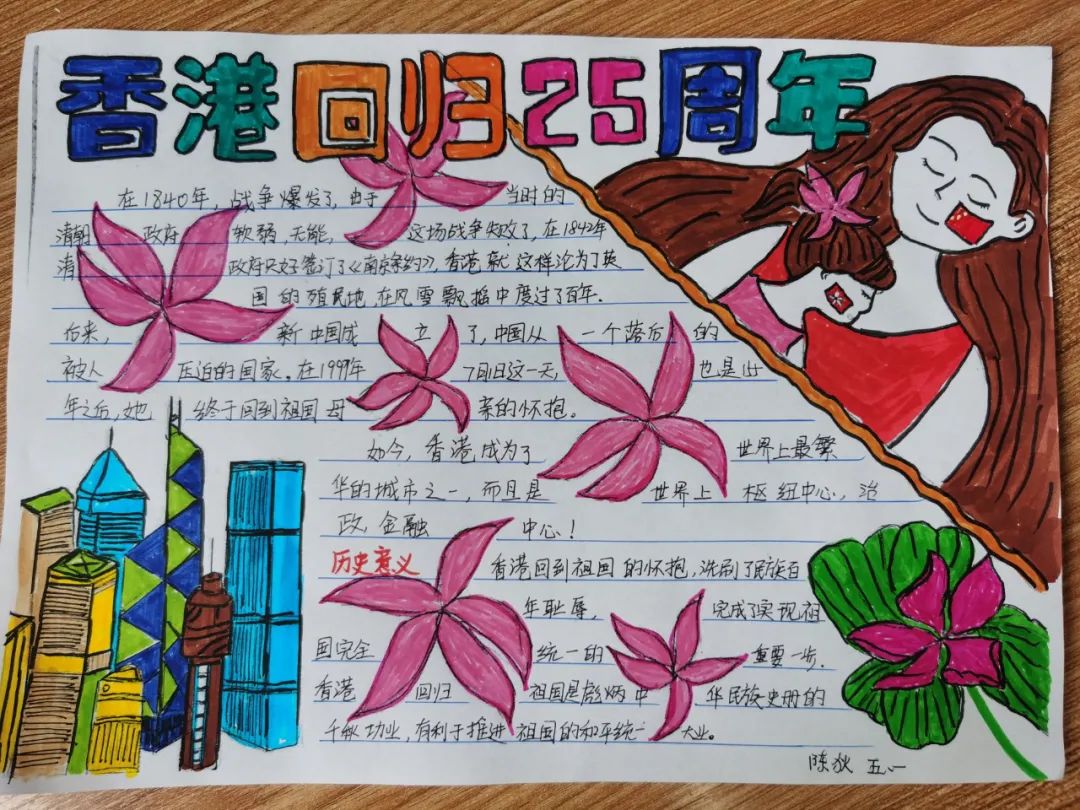 香港回归25周年
在1840年，战争爆发了，由于当时的
清朝政府软弱，无能，这场战争失败了，在1842年
清政府只好签订了《南京条约》，香港就这样沦为了英
国的殖民地，在风雪飘摇中度过了百年。
后来，新中国成立了，中国从一个落后的
被人压迫的国家。在1997年7月1日这一天，也是155
年之后，她终于回到祖国母亲的怀抱。
如今，香港成为了世界上最繁
华的城市之一，而且是世界上枢纽中心，治
政，金融中心！
历史意义
香港回到祖国的怀抱，洗刷了民族百
年耻辱，完成了实现祖
国完全统一的重要一步，
香港回归祖国是彪炳中华民族史册的
千秋功业，有利于推进祖国的和平统一大业。
陈狄 五、一